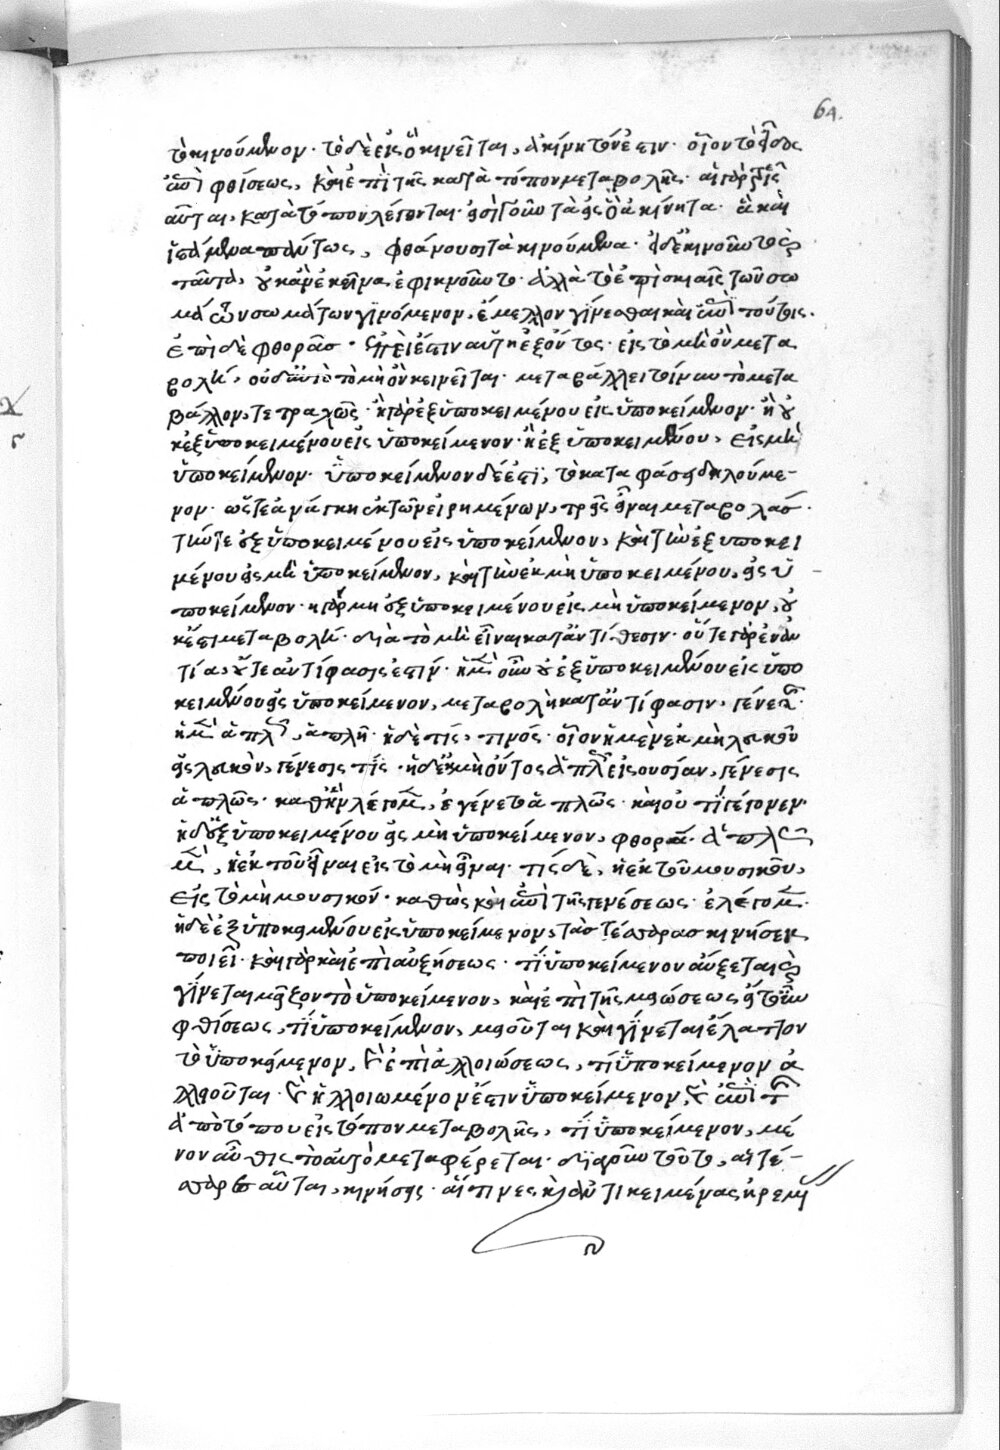 64.
τὸ κινούμενον· τὸ δὲ εἰς ὃ κινεῖται, ἀκίνητόν ἐστιν· οἷον τὸ εἶδος
ἐπὶ φθίσεως, καὶ ἐπὶ τῆς κατὰ τόπον μεταβολῆς· αἱ γὰρ
αὗται, κατὰ τόπον λέγονται· εἰσὶ γοῦν τὰ εἰς ὃ ἀκίνητα· ἃ καὶ
ἱστάμενα πάντως, φθάνουσι τὰ κινούμενα· εἰ δὲ ἐκινοῦντο καὶ
ταῦτα, οὐκ ἂν ἐκεῖνα ἐφικνοῦντο· ἀλλὰ τὸ ἐπὶ σκιαῖς τῶν σω
μάτων σωμάτων γινόμενον, ἔμελλον γίνεσθαι καὶ ἐπὶ τούτοις.
ἐπὶ δὲ φθορᾶς· ἐπεί ἐστιν αὕτη ἐξ ὄντος· εἰς τὸ μὴ ὂν μετα
βολὴ, οὐδ' αὐτὸ τὸ μὴ ὂν κινεῖται· μεταβάλλει τοίνυν τὸ μετα
βάλλον, τετραχῶς· ἢ γὰρ ἐξ ὑποκειμένου εἰς ὑποκείμενον· ἢ οὐ
κ ἐξ ὑποκειμένου εἰς ὑποκείμενον· ἢ ἐξ ὑποκειμένου, εἰς μὴ
ὑποκείμενον· ὑποκείμενον δέ ἐστι, τὸ καταφάσει δηλούμε-
νον· ὥστε ἀνάγκη ἐκ τῶν εἰρημένων, τρεῖς εἶναι μεταβολάς·
τήν τε ἐξ ὑποκειμένου εἰς ὑποκείμενον, καὶ τὴν ἐξ ὑποκει
μένου εἰς μὴ ὑποκείμενον, καὶ τὴν ἐκ μὴ ὑποκειμένου, εἰς ὑ-
ποκείμενον· ἡ γὰρ μὴ ἐξ ὑποκειμένου εἰς μὴ ὑποκείμενον, οὐ
κ ἔστι μεταβολὴ· διὰ τὸ μὴ εἶναι κατ' ἀντίθεσιν· οὔτε γὰρ ἐναν
τία, οὔτε ἀντίφασις ἐστίν· ἡ μὲν οὖν οὐκ ἐξ ὑποκειμένου εἰς ὑπο
κειμένου εἰς ὑποκείμενον, μεταβολὴ κατ' ἀντίφασιν, γένεσις·
ἡ μὲν ἁπλῶς, ἁπλῆ· ἡ δὲ τίς, τινός· οἷον ἡ μὲν ἐκ μὴ λευκοῦ
εἰς λευκὸν, γένεσις τίς· ἡ δ' ἐκ μὴ ὄντος ἁπλῶς εἰς οὐσίαν, γένεσις
ἁπλῶς· καθ' ἣν λέγομεν, ἐγένετο ἁπλῶς· καὶ οὐ τὶ γέγονεν·
ἡ δ' ἐξ ὑποκειμένου εἰς μὴ ὑποκείμενον, φθορά· ἁπλῶς
μὲν, ἡ ἐκ τοῦ εἶναι εἰς τὸ μὴ εἶναι· τίς δὲ, ἡ ἐκ τοῦ μουσικοῦ,
εἰς τὸ μὴ μουσικόν· καθὼς καὶ ἐπὶ τῆς γενέσεως· ἐλέγομεν·
ἡ δὲ ἐξ ὑποκειμένου εἰς ὑποκείμενον, τὰς τέσσαρας κινήσεις
ποιεῖ· καὶ γὰρ καὶ ἐπὶ αὐξήσεως· τί ὑποκείμενον αὔξεται καὶ
γίνεται μεῖζον τὸ ὑποκείμενον, καὶ ἐπὶ τῆς μειώσεως εἴτουν
φθίσεως, τί ὑποκείμενον, μειοῦται καὶ γίνεται ἔλαττον
τὸ ὑποκείμενον, καὶ ἐπὶ ἀλλοιώσεως, τί ὑποκείμενον ἀ
λλοιοῦται· καὶ ἠλλοιωμένον ἐστιν ὑποκείμενον, καὶ ἐπὶ τῆς
ἀπὸ τόπου εἰς τόπον μεταβολῆς, τί ὑποκείμενον, μέ
νον αὖθις τὸ αὐτὸ μεταφέρεται· διὰ γοῦν τοῦτο, αἱ τέσ-
σαρες αὗται, κινήσεις· αἵτινες καὶ ἀντικειμένας ἠρεμί